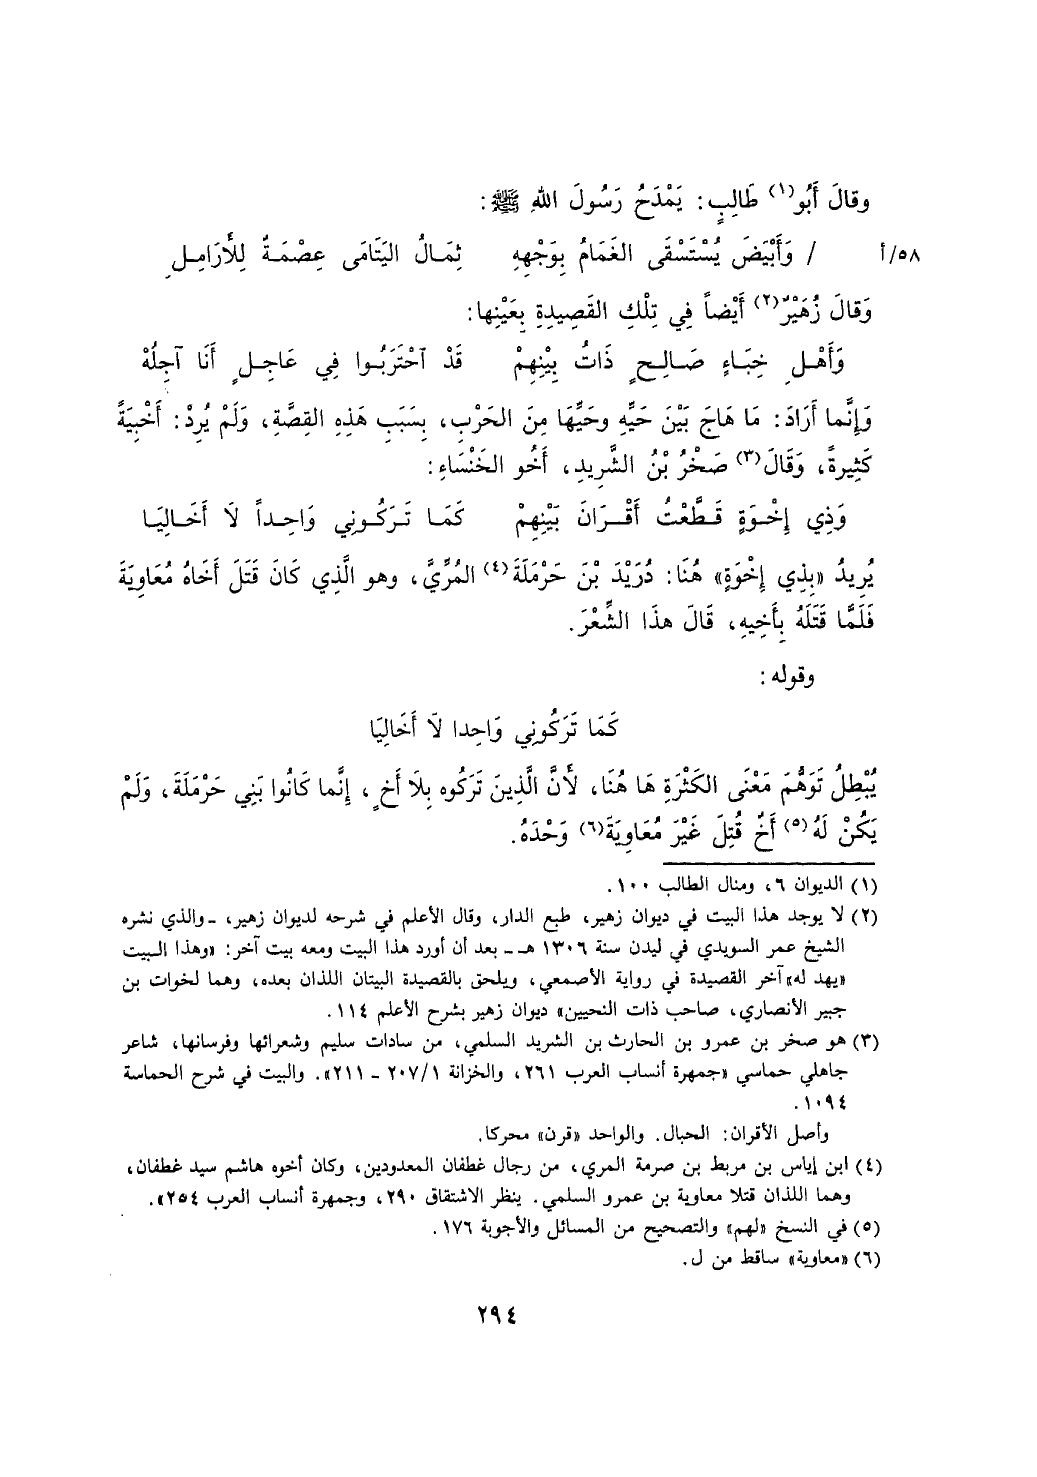 وقالَ أَبُو(١) طَالِبٍ: يَمْدَحُ رَسُولَ اللهِ ﷺ:
٥٨/أ / وَأَبْيَضَ يُسْتَسْقَى الغَمَامُ بِوَجْهِهِ ثِمَالُ اليَتَامَى عِصْمَةٌ لِلْأَرَامِلِ
وَقالَ زُهَيْرٌ(٢) أَيْضاً فِي تِلْكِ القَصِيدِةِ بِعَيْنِها:
وَأَهْلِ خِبَاءٍ صَالِحٍ ذَاتُ بِيْنِهِمْ قَدْ آحْتَرَبُوا فِي عَاجِلٍ أَنَا آجِلُهْ
وَإِنَّما أَرَادَ: مَا هَاجَ بَيْنَ حَيِّهِ وحَيِّهَا مِنَ الحَرْبِ، بِسَبَبِ هَذِهِ القِصَّةِ، وَلَمْ يُرِدْ: أَخْبِيَةً
كَثِيرةً، وَقَالَ(٣) صَخْرُ بْنُ الشَّرِيدِ، أَخُو الخَنْسَاءِ:
وَذِي إِخْوَةٍ قَطَّعْتُ أَقْرَانَ بَيْنِهِمْ كَمَا تَرَكُونِي وَاحِداً لَا أَخَالِيَا
يُرِيدُ «بِذِي إِخْوَةٍ» هُنَا: دُرَيْدَ بْنَ حَرْمَلَةَ(٤) المُرِّيَّ، وهو الَّذِي كَانَ قَتَلَ أَخَاهُ مُعَاوِيَةَ
فَلَمَّا قَتَلَهُ بِأَخِيهِ، قَالَ هذَا الشِّعْرَ.
وقوله:
كَمَا تَرَكُونِي وَاحِدا لَا أَخَالِيَا
يُبْطِلُ تَوَهُّمَ مَعْنَى الكَثْرَةِ هَا هُنَا، لَأَنَّ الَّذِينَ تَرَكُوه بِلَا أَخٍ، إِنَّما كَانُوا بَنِي حَرْمَلَةَ، وَلَمْ
يَكُنْ لَهُ(٥) أَخٌ قُتِلَ غَيْرَ مُعَاوِيَةَ(٦) وَحْدَهُ.
(١) الديوان ٦، ومنال الطالب ١٠٠.
(٢) لا يوجد هذا البيت في ديوان زهير، طبع الدار، وقال الأعلم في شرحه لديوان زهير، ـ والذي نشره
الشيخ عمر السويدي في ليدن سنة ١٣٠٦ هـ ـ بعد أن أورد هذا البيت ومعه بيت آخر: «وهذا البيت
«يهد له» آخر القصيدة في رواية الأصمعي، ويلحق بالقصيدة البيتان اللذان بعده، وهما لخوات بن
جبير الأنصاري، صاحب ذات النحيين» ديوان زهير بشرح الأعلم ١١٤.
(٣) هو صخر بن عمرو بن الحارث بن الشريد السلمي، من سادات سليم وشعرائها وفرسانها، شاعر
جاهلي حماسي «جمهرة أنساب العرب ٢٦١، والخزانة ٢٠٧/١ ـ ٢١١». والبيت في شرح الحماسة
١٠٩٤.
وأصل الأقران: الحبال. والواحد «قرن» محركا.
(٤) ابن إياس بن مريط بن صرمة المري، من رجال غطفان المعدودين، وكان أخوه هاشم سيد غطفان،
وهما اللذان قتلا معاوية بن عمرو السلمي. ينظر الاشتقاق ٢٩٠، وجمهرة أنساب العرب ٢٥٤».
(٥) في النسخ «لهم» والتصحيح من المسائل والأجوبة ١٧٦.
(٦) «معاوية» ساقط من ل.
٢٩٤